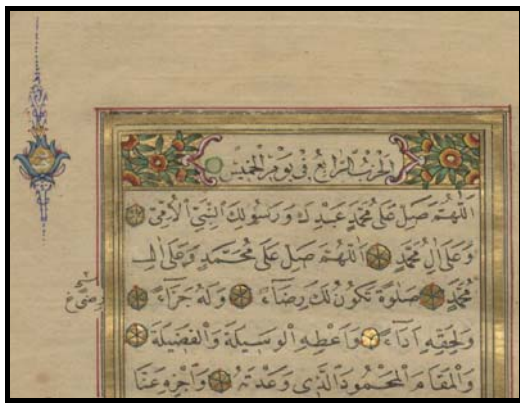 الحزب الرابع في يوم الخميس
اللهم صل على محمد عبدك ورسولك النبي الأمي
وعلى ال محمد اللهم صل على محمد وعلى ال
محمد صلوة تكون لك رضاء وله جزاء
ولحقه اداء واعطه الوسيلة والفضيلة
والمقام المحمود الذي وعدته واجزه عنا